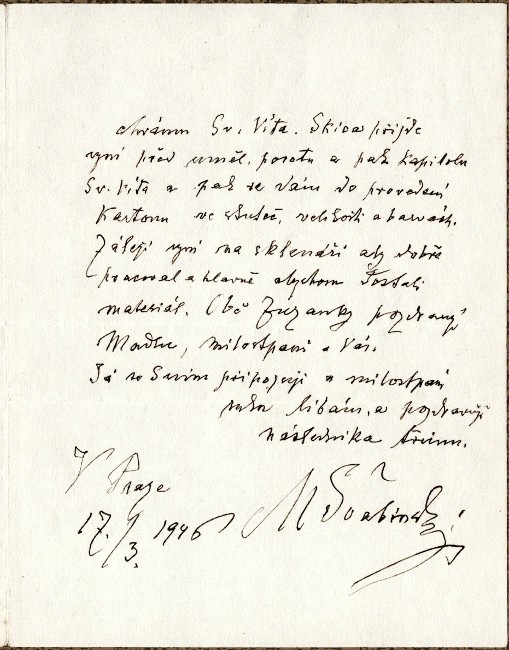 chrámu Sv. Víta. Skica přijde
nyní před uměl. porotu a pak Kapitolu
Sv. Víta a pak se dám do provedení
Kartonu ve skuteč. velikosti a barvách.
Záleží nyní na sklenáři aby dobře
pracoval a hlavně abychom dostali
materiál. Obě Zuzanky pozdravují
milostpaní a Vás.
Já se k nim připojuji a milostpaní
ruku líbám, a pozdravuji
následníka trůnu.
V Praze
17./3. 1946 M Švabinský